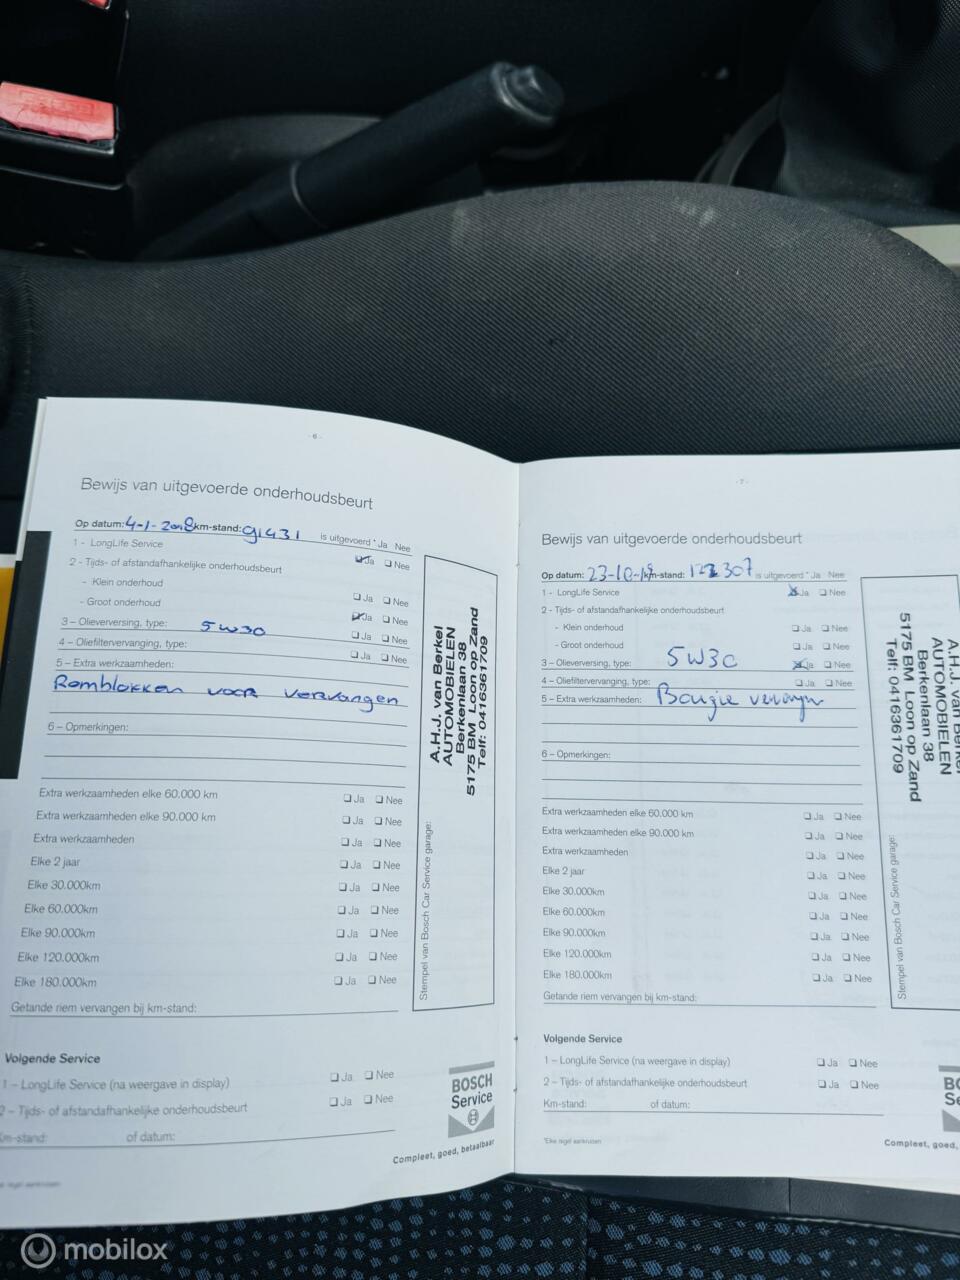 - 6 -
Bewijs van uitgevoerde onderhoudsbeurt
Op datum: 4-1-2018 km-stand: 91431 is uitgevoerd * Ja Nee
1 - LongLife Service Ja Nee
2 - Tijds- of afstandafhankelijke onderhoudsbeurt
- Klein onderhoud Ja Nee
- Groot onderhoud Ja Nee
3 – Olieverversing, type: 5W30 Ja Nee
4 – Oliefiltervervanging, type: Ja Nee
5 – Extra werkzaamheden:
Remblokken voor vervangen
6 – Opmerkingen:
Extra werkzaamheden elke 60.000 km Ja Nee
Extra werkzaamheden elke 90.000 km Ja Nee
Extra werkzaamheden Ja Nee
Elke 2 jaar Ja Nee
Elke 30.000km Ja Nee
Elke 60.000km Ja Nee
Elke 90.000km Ja Nee
Elke 120.000km Ja Nee
Elke 180.000km Ja Nee
Getande riem vervangen bij km-stand:
A.H.J. van Berkel
AUTOMOBIELEN
Berkenlaan 38
5175 BM Loon op Zand
Telf: 0416361709
Stempel van Bosch Car Service garage:
Volgende Service
1 – LongLife Service (na weergave in display) Ja Nee
2 – Tijds- of afstandafhankelijke onderhoudsbeurt Ja Nee
Km-stand: of datum:
BOSCH
Service
Compleet, goed, betaalbaar
- 7 -
Bewijs van uitgevoerde onderhoudsbeurt
Op datum: 23-10-19 km-stand: 122307 is uitgevoerd * Ja Nee
1 - LongLife Service Ja Nee
2 - Tijds- of afstandafhankelijke onderhoudsbeurt
- Klein onderhoud Ja Nee
- Groot onderhoud Ja Nee
3 – Olieverversing, type: 5W30 Ja Nee
4 – Oliefiltervervanging, type: Ja Nee
5 – Extra werkzaamheden: Bougie
6 – Opmerkingen:
Extra werkzaamheden elke 60.000 km Ja Nee
Extra werkzaamheden elke 90.000 km Ja Nee
Extra werkzaamheden Ja Nee
Elke 2 jaar Ja Nee
Elke 30.000km Ja Nee
Elke 60.000km Ja Nee
Elke 90.000km Ja Nee
Elke 120.000km Ja Nee
Elke 180.000km Ja Nee
Getande riem vervangen bij km-stand:
A.H.J. van Berkel
AUTOMOBIELEN
Berkenlaan 38
5175 BM Loon op Zand
Telf: 0416361709
Stempel van Bosch Car Service garage:
Volgende Service
1 – LongLife Service (na weergave in display) Ja Nee
2 – Tijds- of afstandafhankelijke onderhoudsbeurt Ja Nee
Km-stand: of datum:
*Elke regel aankruisen
Compleet, goed,
mobilox